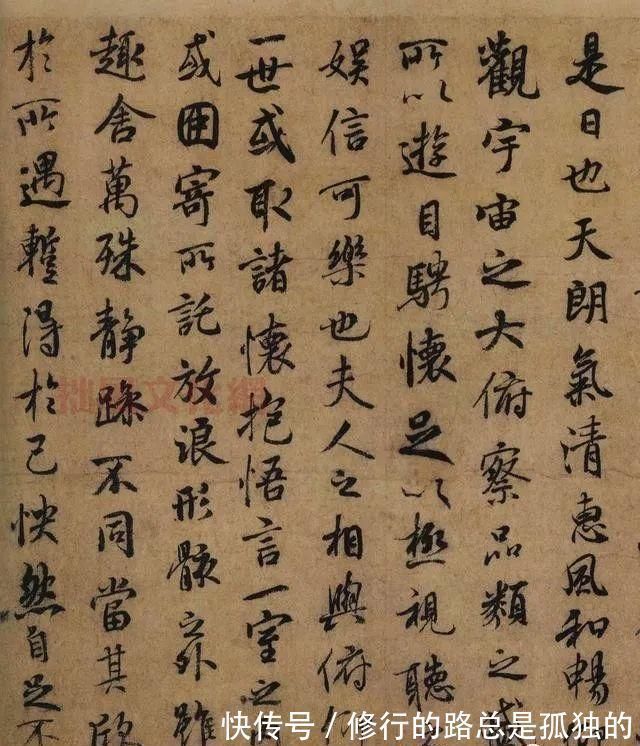 是日也天朗氣清惠風和暢
觀宇宙之大俯察品類之盛
所以遊目騁懷足以極視聽
娛信可樂也夫人之相與俯仰
一世或取諸懷抱悟言一室之
或因寄所託放浪形骸之外雖
趣舍萬殊静躁不同當其欣
於所遇蹔得於己怏然自足不
拙风文化网
快传号 / 修行的路总是孤独的